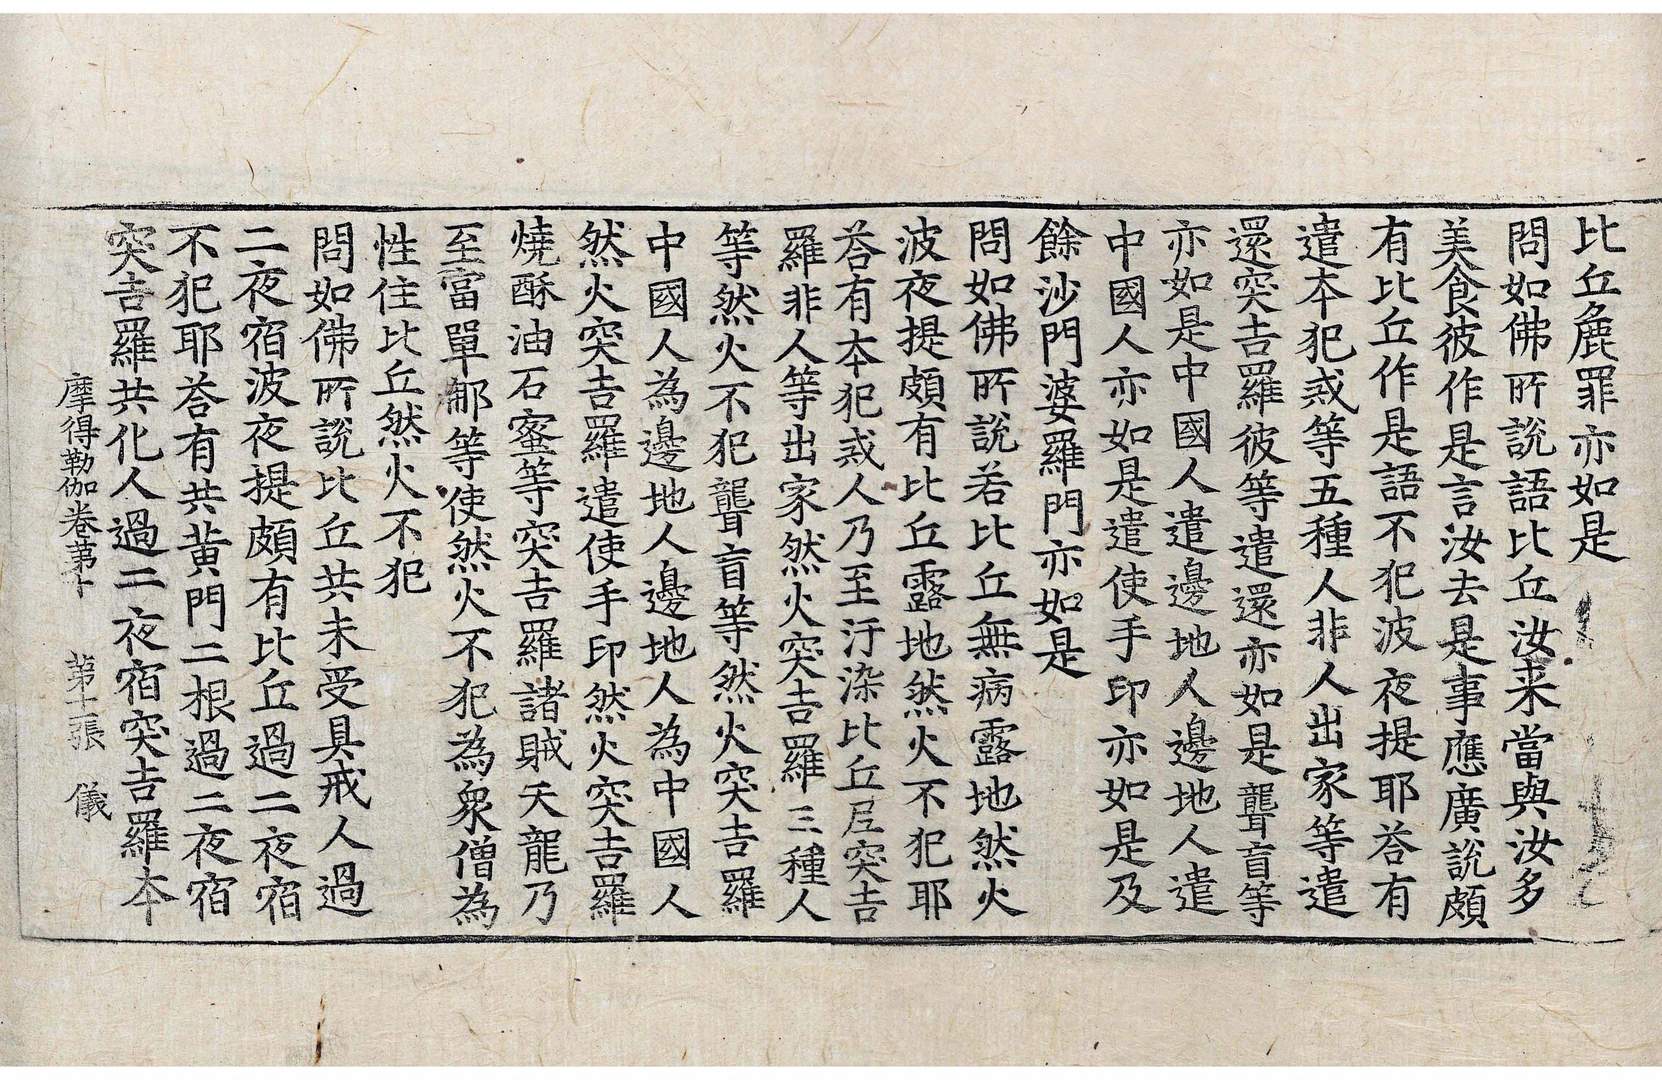 比丘麁罪亦如是
問如佛所說語比丘汝来當與汝多
美食彼作是言汝去是事應廣說頗
有比丘作是語不犯波夜提耶荅有
遣夲犯戒等五種人非人出家等遣
還突吉羅彼等遣還亦如是聾盲等
亦如是中國人遣邊地人邊地人遣
中國人亦如是遣使手印亦如是及
餘沙門婆羅門亦如是
問如佛所說若比丘無病露地然火
波夜提頗有比丘露地然火不犯耶
荅有夲犯戒人乃至汙染比丘尼突吉
羅非人等出家然火突吉羅三種人
等然火不犯聾盲等然火突吉羅
中國人為邊地人邊地人為中國人
然火突吉羅遣使手印然火突吉羅
燒酥油石蜜等突吉羅諸賊天龍乃
至富單那等使然火不犯為衆僧為
性住比丘然火不犯
問如佛所說比丘共未受具戒人過
二夜宿波夜提頗有比丘過二夜宿
不犯耶荅有共黄門二根過二夜宿
突吉羅共化人過二夜宿突吉羅夲
摩得勒伽卷苐十 苐十張 儀